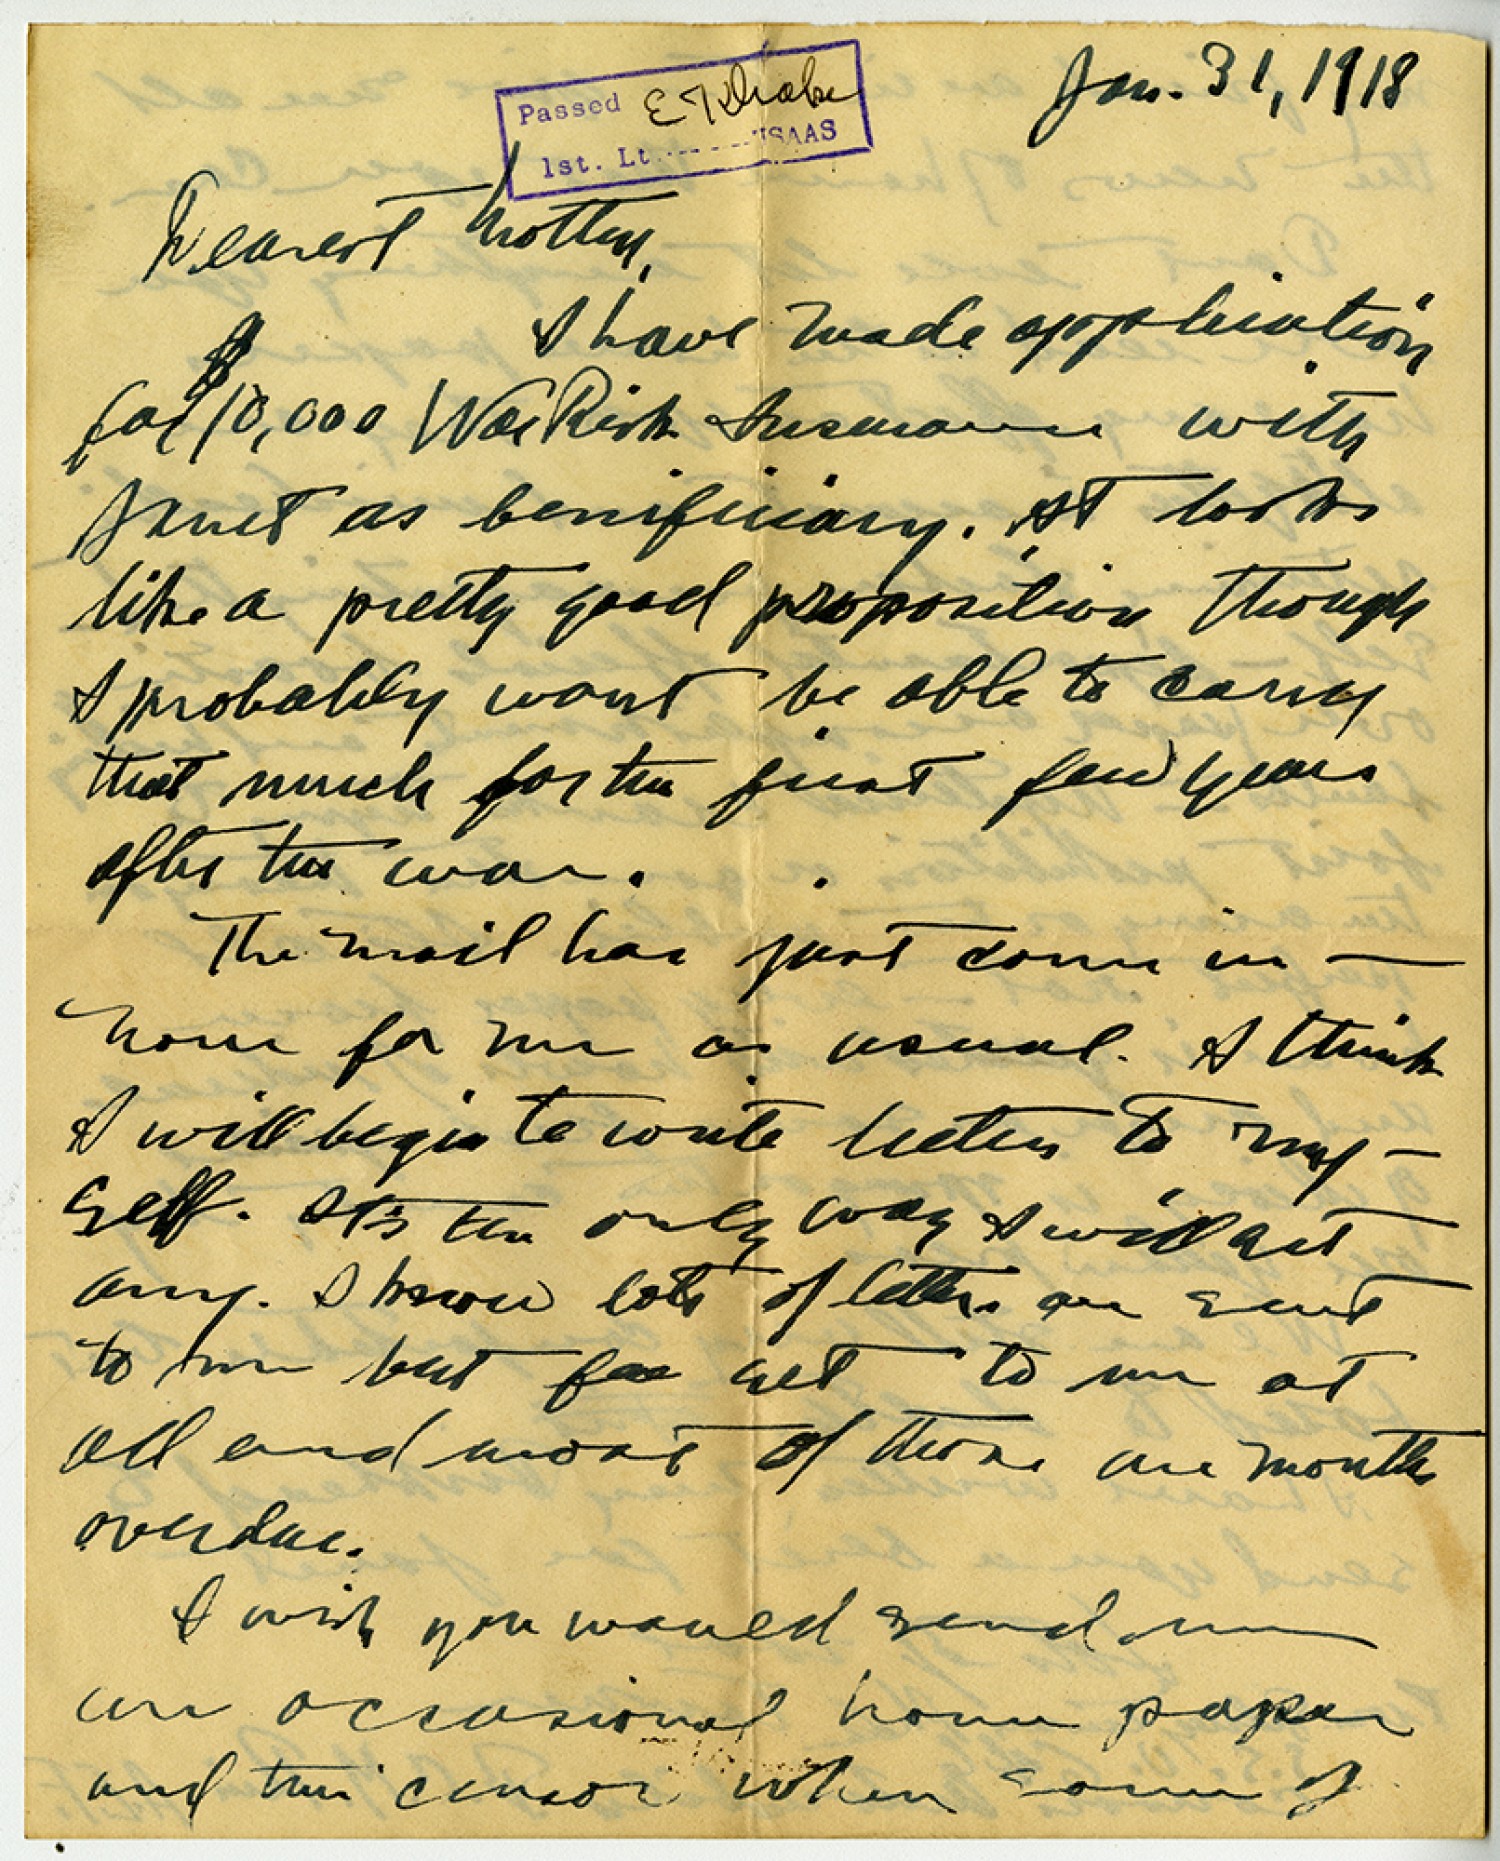 Jan. 31, 1918
Passed
1st. Lt. USAAS
Dearest Mother,
I have made application
for $10,000 War Risk Insurance with
Janet as benificiary. It looks
like a pretty good proposition though
I probably wont be able to carry
that much for the first few years
after the war.
The mail has just come in —
none for me as usual. I think
I will begin to write letters to my-
self. It's the only way I will get
any. I know lots of letters are sent
to me but few get to me at
all and most of those are months
overdue.
I wish you would send me
an occasional home paper
and the censor when some of